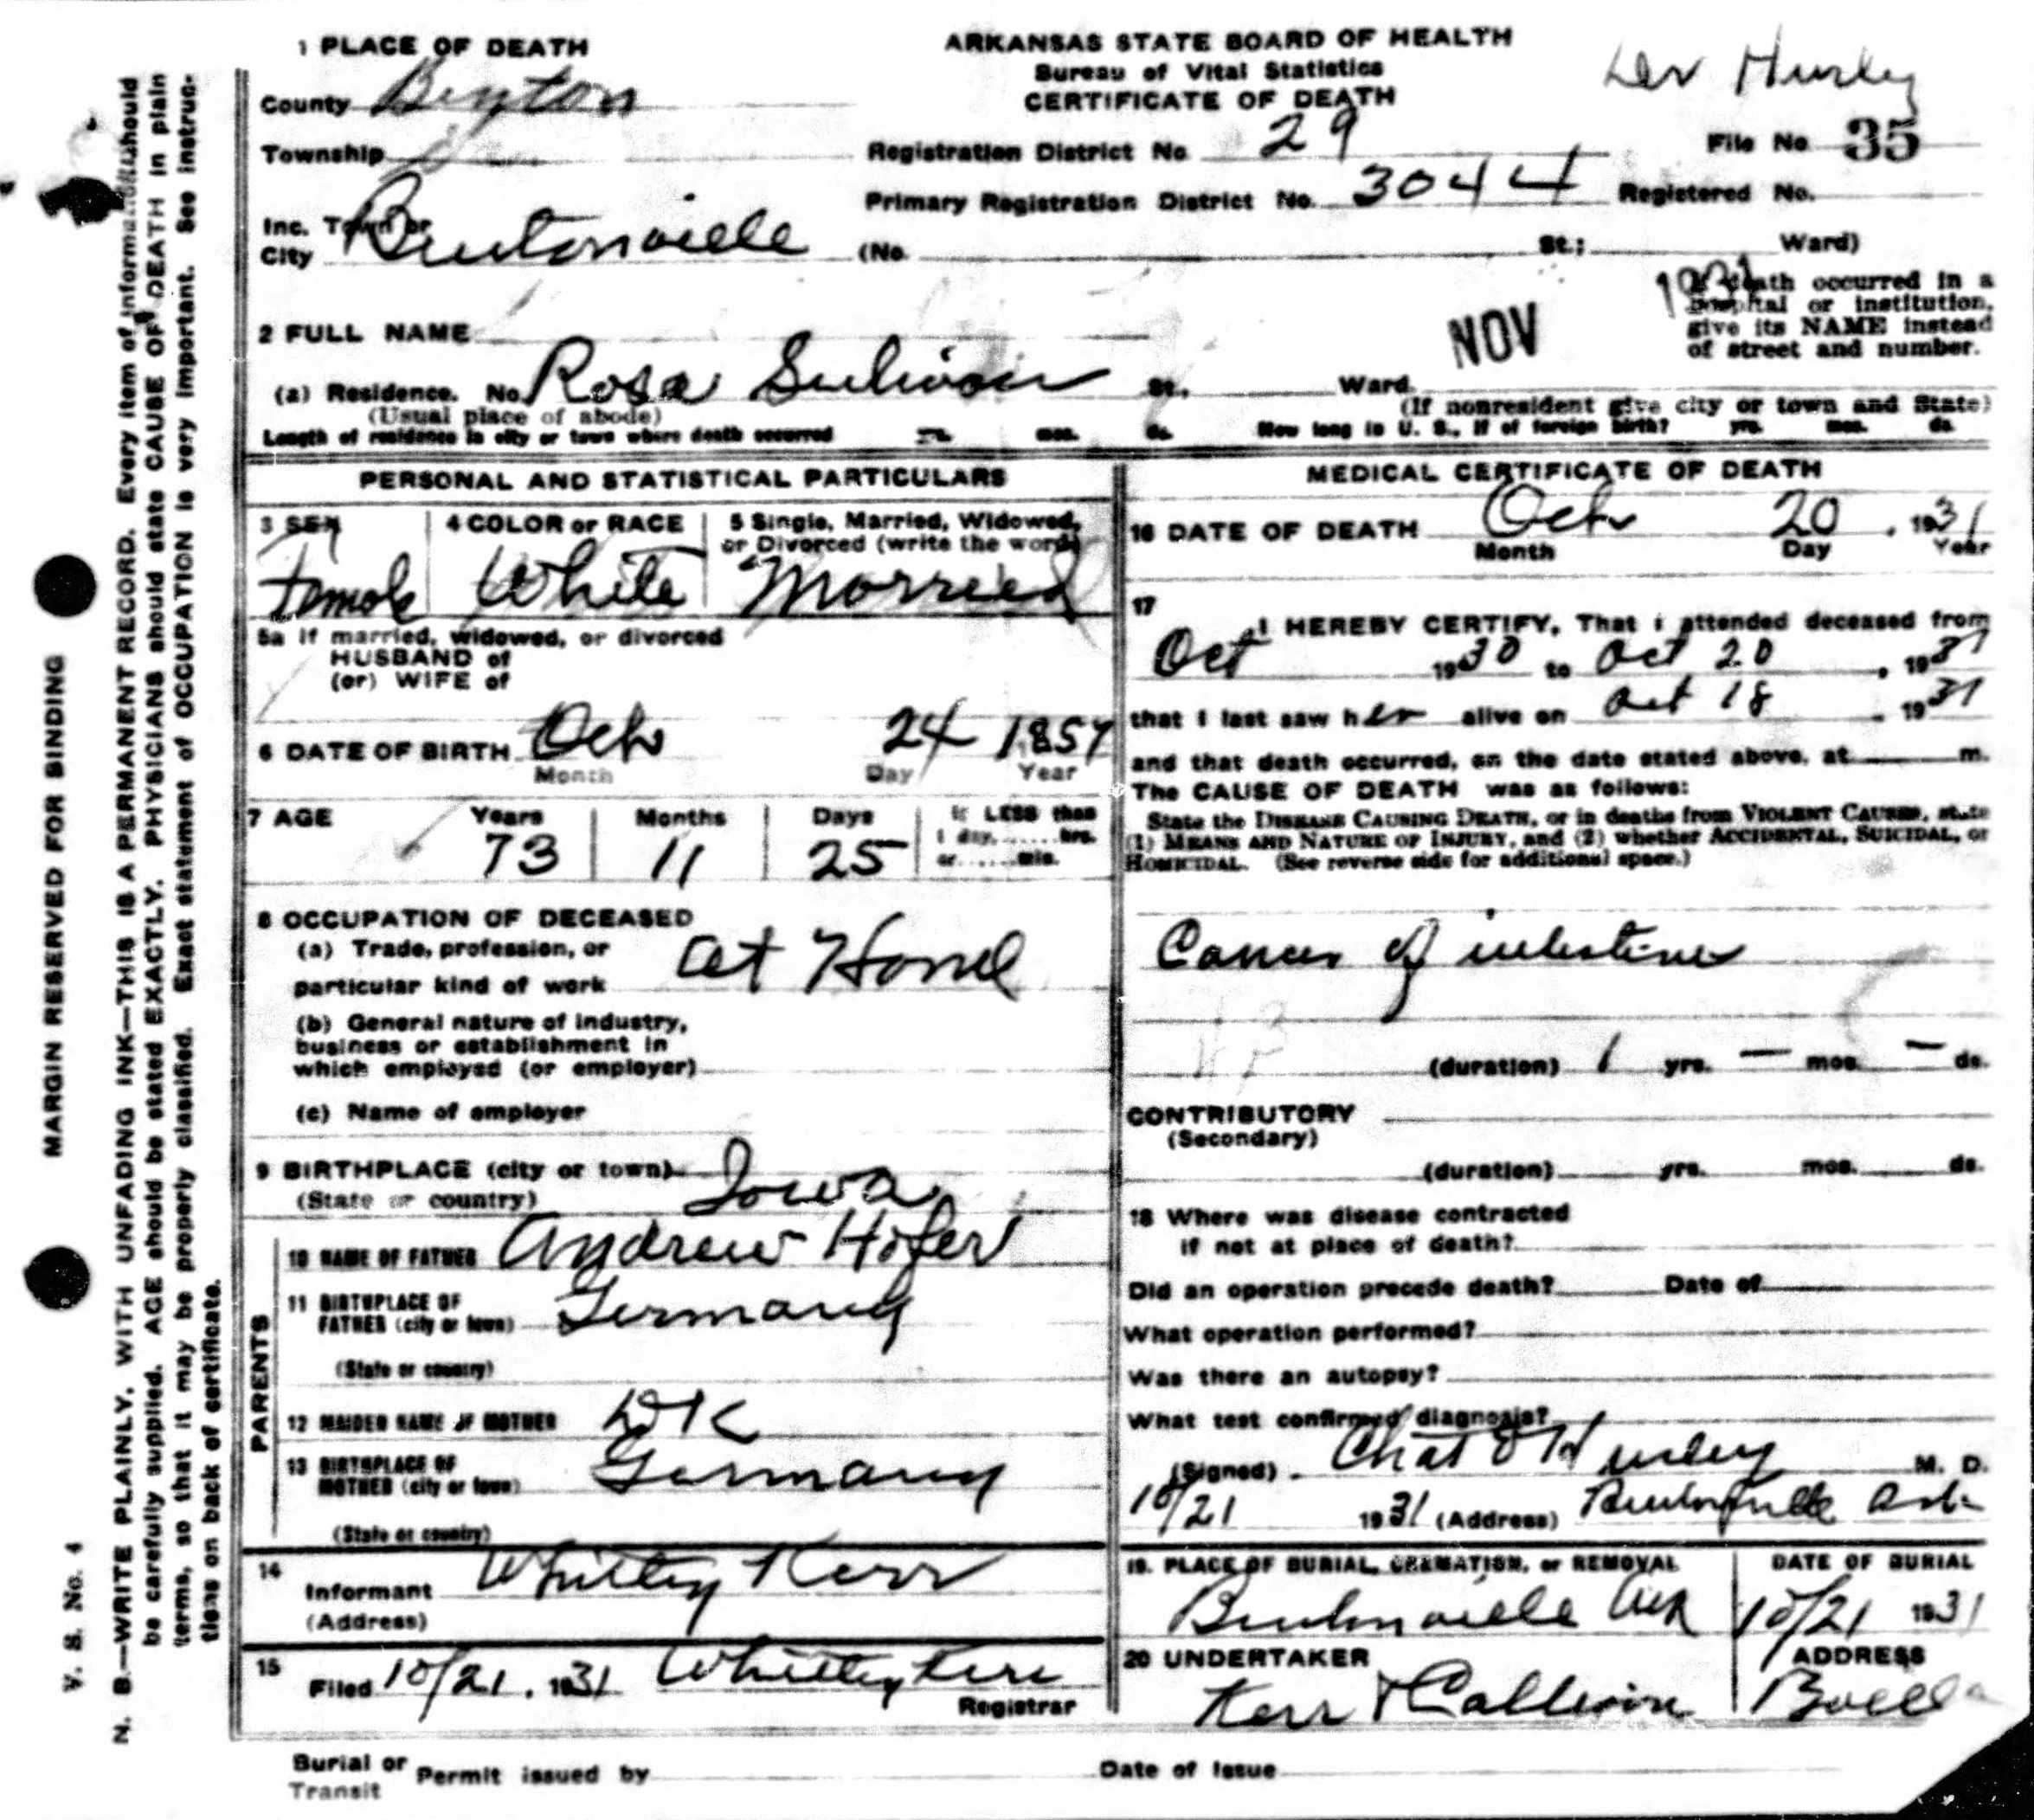 1 PLACE OF DEATH
ARKANSAS STATE BOARD OF HEALTH
Bureau of Vital Statistics
CERTIFICATE OF DEATH
Hurley
County Benton
Township
Registration District No 29
File No 35
Primary Registration District No. 3044 Registered No.
Inc. Town or
City Bentonville (No. St.; Ward)
NOV
If death occurred in a
hospital or institution,
give its NAME instead
of street and number.
2 FULL NAME
(a) Residence. No. Rosa Sulivan St. Ward.
(Usual place of abode) (If nonresident give city or town and State)
Length of residence in city or town where death occurred yrs. mos. ds. How long in U. S., if of foreign birth? yrs. mos. ds.
PERSONAL AND STATISTICAL PARTICULARS
3 SEX 4 COLOR or RACE 5 Single, Married, Widowed,
or Divorced (write the word)
Female White Married
5a If married, widowed, or divorced
HUSBAND of
(or) WIFE of
6 DATE OF BIRTH Oct 24 1857
Month Day Year
7 AGE Years Months Days If LESS than
1 day, ...... hrs.
or ...... min.
73 11 25
8 OCCUPATION OF DECEASED
(a) Trade, profession, or
particular kind of work At Home
(b) General nature of industry,
business or establishment in
which employed (or employer)
(c) Name of employer
9 BIRTHPLACE (city or town)
(State or country) Iowa
PARENTS
10 NAME OF FATHER Andrew Hofer
11 BIRTHPLACE OF
FATHER (city or town) Germany
(State or country)
12 MAIDEN NAME OF MOTHER DK
13 BIRTHPLACE OF
MOTHER (city or town) Germany
(State or country)
14
Informant Whitley Kerr
(Address)
15
Filed 10/21, 1931 Whitley Kerr
Registrar
MEDICAL CERTIFICATE OF DEATH
16 DATE OF DEATH Oct 20, 1931
Month Day Year
17
I HEREBY CERTIFY, That I attended deceased from
Oct 1930 to Oct 20, 1931
that I last saw her alive on Oct 18, 1931
and that death occurred, on the date stated above, at m.
The CAUSE OF DEATH was as follows:
State the DISEASE CAUSING DEATH, or in deaths from VIOLENT CAUSES, state
(1) MEANS AND NATURE OF INJURY, and (2) whether ACCIDENTAL, SUICIDAL, or
HOMICIDAL. (See reverse side for additional space.)
Cancer of intestines
(duration) 1 yrs. — mos. — ds.
CONTRIBUTORY
(Secondary)
(duration) yrs. mos. ds.
18 Where was disease contracted
if not at place of death?
Did an operation precede death? Date of
What operation performed?
Was there an autopsy?
What test confirmed diagnosis?
(Signed) Chas Hurley M. D.
10/21 1931 (Address) Bentonville Ark
19. PLACE OF BURIAL, CREMATION, or REMOVAL DATE OF BURIAL
Bentonville Ark 10/21 1931
20 UNDERTAKER ADDRESS
Kerr & Callison
Burial or
Transit Permit issued by Date of Issue
MARGIN RESERVED FOR BINDING
V. S. No. 4
N. B.—WRITE PLAINLY, WITH UNFADING INK—THIS IS A PERMANENT RECORD. Every item of information should
be carefully supplied. AGE should be stated EXACTLY. PHYSICIANS should state CAUSE OF DEATH in plain
terms, so that it may be properly classified. Exact statement of OCCUPATION is very important. See instruc-
tions on back of certificate.